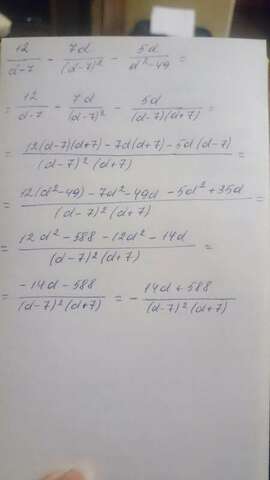 12/(d-7) - 7d/(d-7)² - 5d/(d²-49) =
= 12/(d-7) - 7d/(d-7)² - 5d/((d-7)(d+7)) =
= (12(d-7)(d+7) - 7d(d+7) - 5d(d-7))/((d-7)²(d+7)) =
= (12(d²-49) - 7d² - 49d - 5d² + 35d)/((d-7)²(d+7)) =
= (12d² - 588 - 12d² - 14d)/((d-7)²(d+7)) =
= (-14d - 588)/((d-7)²(d+7)) = - (14d + 588)/((d-7)²(d+7))